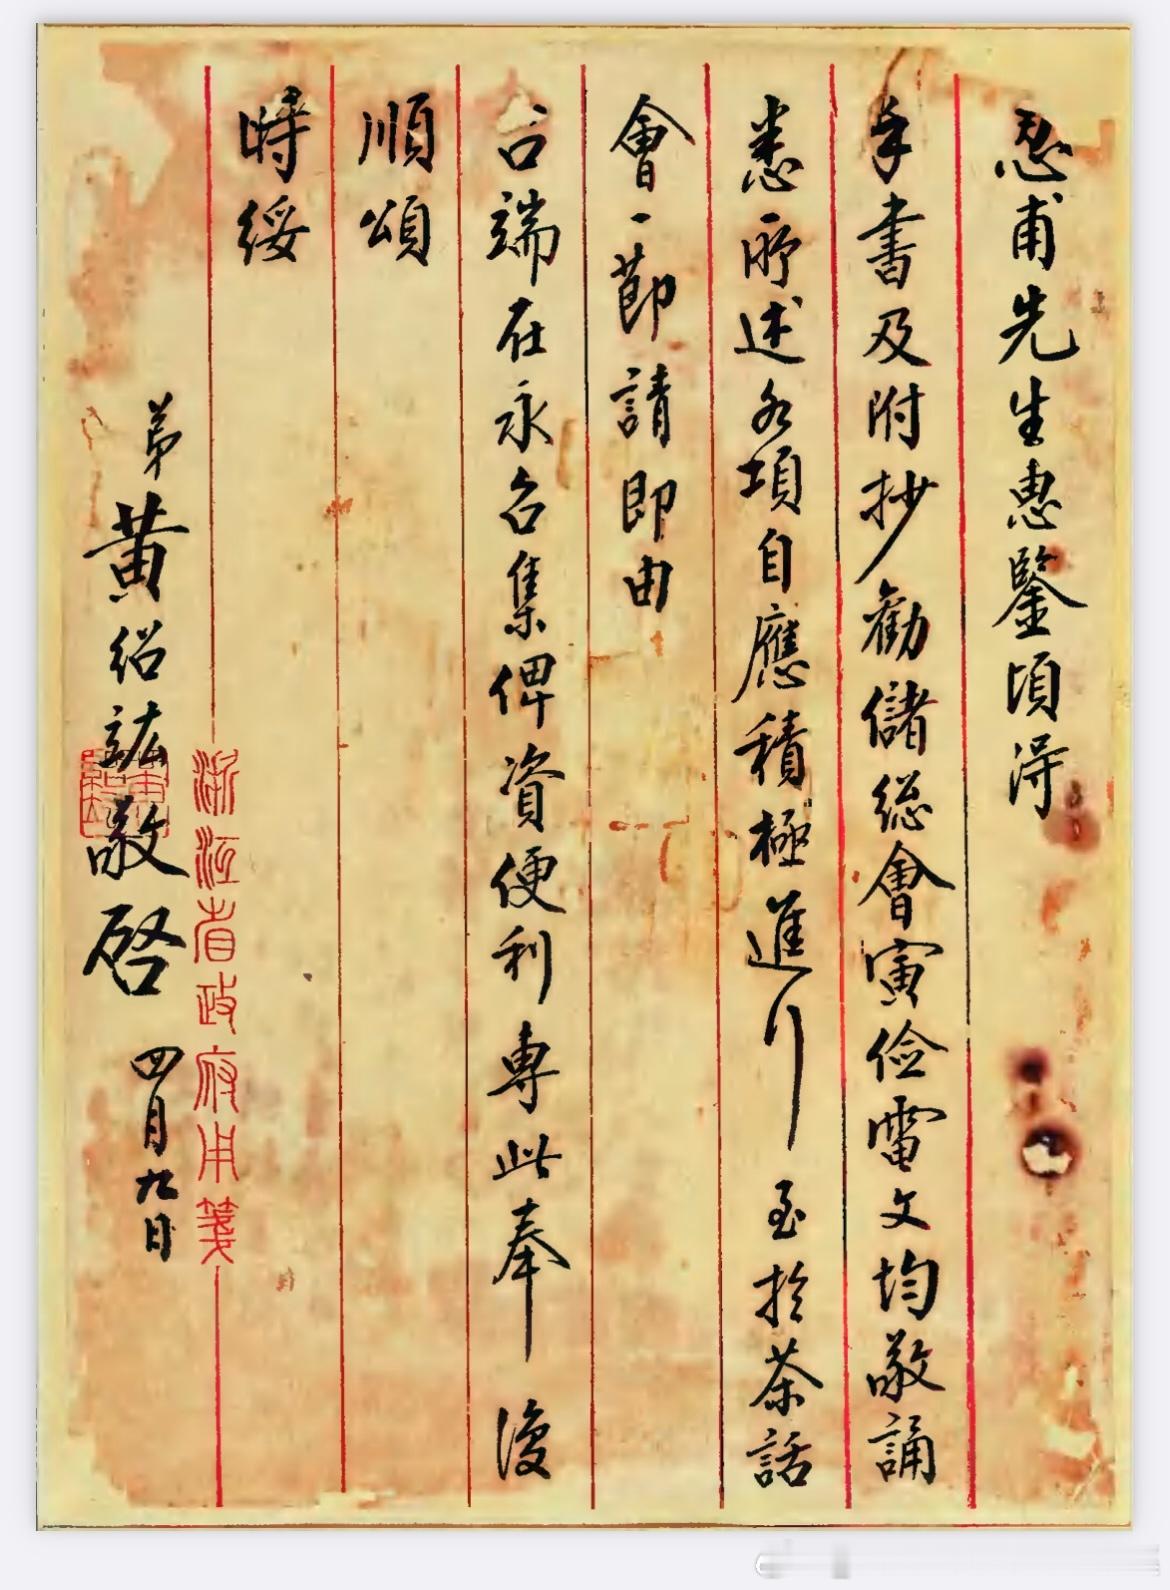 忍甫先生惠鑒頃得
手書及附抄勸儲総會寅儉電文均敬誦
悉所述各項自應積極進行至於茶話
會一節請即由
台端在永召集俾資便利專此奉復
順頌
時綏
弟黃紹竑敬啓 四月九日
浙江省政府用箋